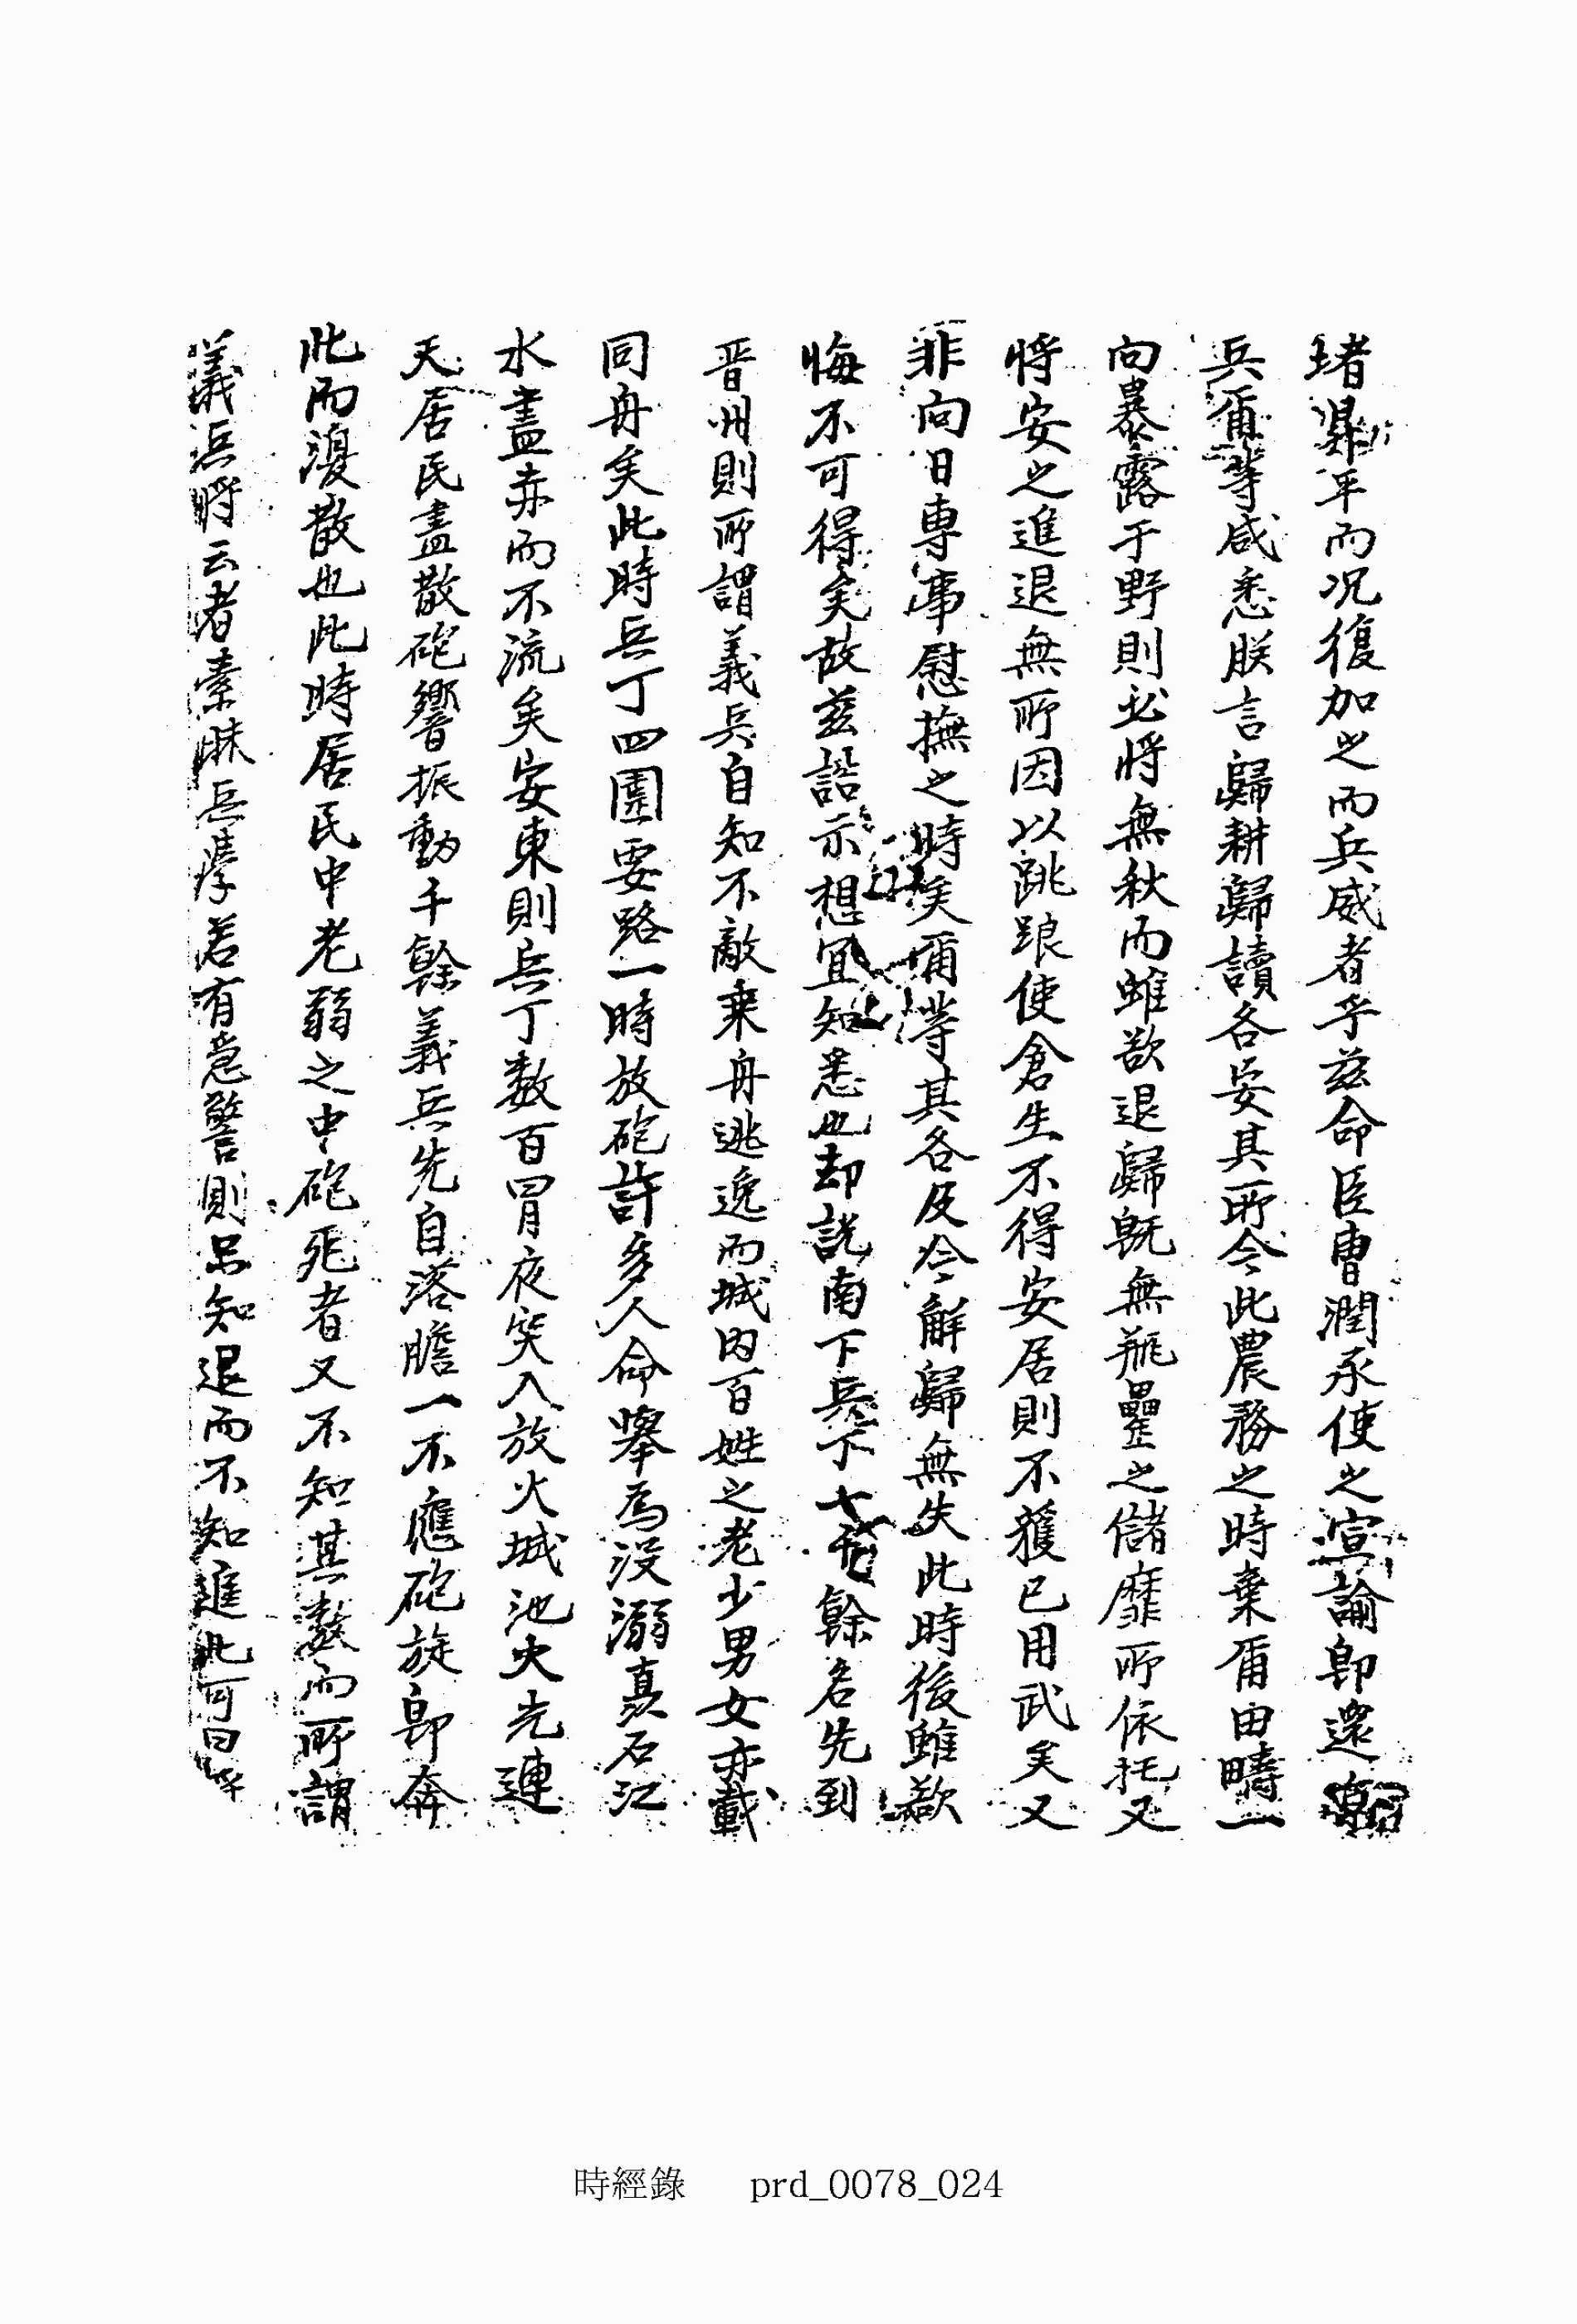 堵鼻平而况復加之而兵威者乎玆命臣曺潤承使之宣諭卽還
兵爾等咸悉朕言歸耕歸讀各安其所今此農務之時棄爾田疇一
向暴露于野則必將無秋而雖欲退歸旣無甁罍之儲靡所依托又
將安之進退無所因以跳踉使倉生不得安居則不獲已用武矣又
非向日專事慰撫之時矣爾等其各及今解歸無失此時後雖欲
悔不可得矣故玆誥示想宜知悉也却說南下兵下七千餘名先到
晋州則所謂義兵自知不敵乘舟逃逸而城內百姓之老少男女亦載
同舟矣此時兵丁四圍要路一時放砲許多人命擧爲沒溺矗石江
水盡赤而不流矣安東則兵丁数百冒夜突入放火城池火光連
天居民盡散砲響振動千餘義兵先自落膽一不應砲旋卽奔
北而潰散也此時居民中老弱之中砲死者又不知其數而所謂
義兵將云者素昧兵學若有急警則只知退而不知進此可曰
時經錄 prd_0078_024